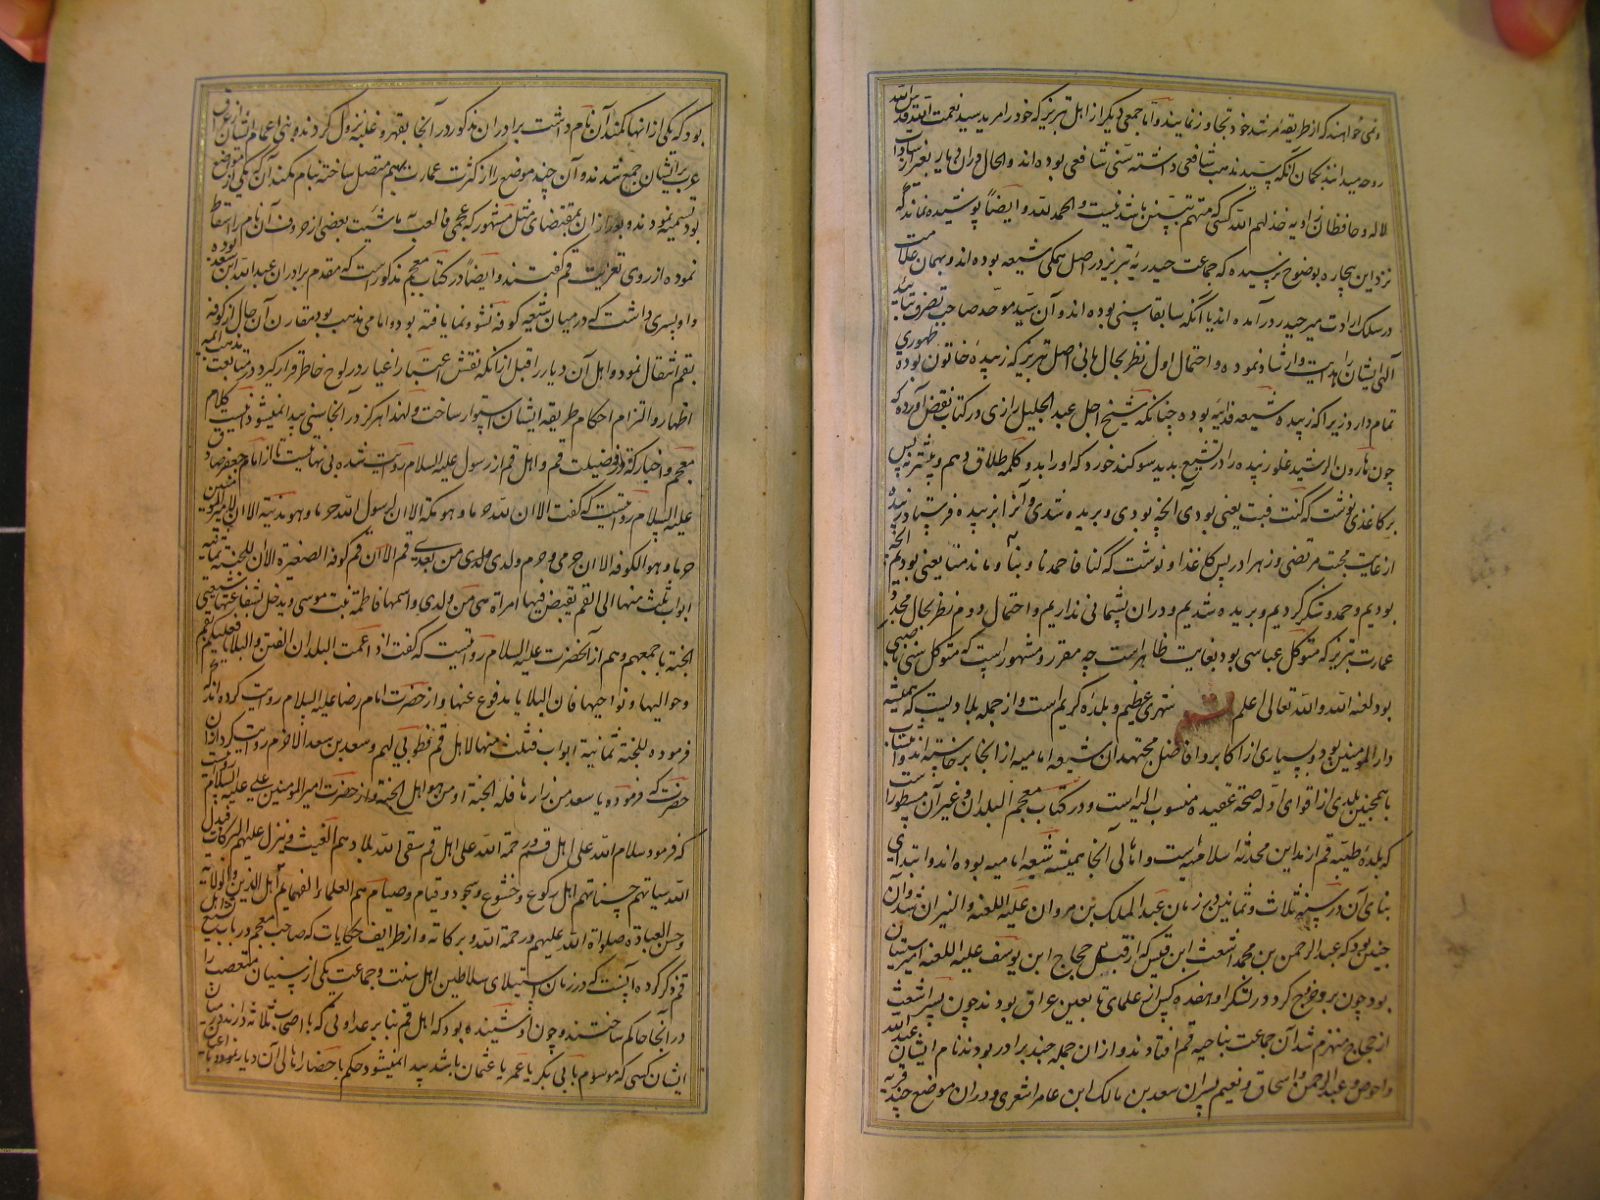 ونمی خواهند که از طریقه مرشد خود تجاوز نمایند و اما جمعی دیگر از اهل تبریز که خود را مرید سید نعمت الله قدس الله
روحه میدانند بگمان آنکه سید مذهب شافعی داشته سنی شافعی بوده اند و الحال در ان دیار بغیر از سادات
لاله و حافظان زاویه خذلهم الله کسی که متهم بتسنن باشد نیست و الحمد لله و ایضا پوشیده نماند که
نزد این بیچاره بوضوح نرسیده که جماعت حیدریه تبریز در اصل همگی شیعه بوده اند و بهمان علامت
در سلک ارادت میر حیدر درآمده اند یا آنکه سابقا سنی بوده اند و آن سید موحد صاحب تصرف بتایید
الهی ایشان را هدایت و ارشاد نموده و احتمال اول نظر بحال بانی اصل تبریز که زبیده خاتون بوده ظهوری
تمام دارد زیرا که زبیده شیعه فدائیه بوده چنانکه شیخ اجل عبد الجلیل رازی در کتاب نقض آورده که
چون هارون الرشید غلو زبیده را در تشیع بدید سوگند خورد که او را بدو کلمه طلاق دهم و بیشتر نه پس
بر کاغذی نوشت که کنت فبنت یعنی بودی آنچه بودی و بریده شدی و آنرا بزبیده فرستاد زبیده
از غایت محبت مرتضی و زهرا در پس کاغذ او نوشت که کنا فما حمدنا و بنا و ما ندمنا یعنی بودیم آنچه
بودیم و حمد و شکر نکردیم و بریده شدیم و در ان پشیمانی نداریم و احتمال دوم نظر بحال مجدد
عمارت تبریز که متوکل عباسی بود بغایت ظاهر است چه مقرر و مشهور است که متوکل سنی ناصبی
بود لعنه الله و الله تعالی اعلم قم شهری عظیم و بلده کریم است و از جمله بلادیست که همیشه
دار المومنین بوده و بسیاری از اکابر و افاضل مجتهدان شیعه امامیه از آنجا برخاسته اند و انتساب
باهمچنین بلدی از اقوای ادله صحة عقیده منسوب الیه است و در کتاب معجم البلدان و غیر آن مسطور است
که بلده طیبه قم از مداین محدثه اسلامیه است و اهالی آنجا همیشه شیعه امامیه بوده اند و ابتدای
بنای آن در سنه ثلاث و ثمانین در زمان عبد الملک بن مروان علیه اللعنه و النیران شد و آن
چنین بود که عبد الرحمن بن محمد اشعث ابن قیس که از قبل حجاج ابن یوسف علیه اللعنه امیر سیستان
بود چون برو خروج کرد در لشکر او هفده کس از علمای تابعین عراق بودند چون پسر اشعث
از حجاج منهزم شد آن جماعت بناحیه قم افتادند و از ان جمله چند برادر بودند نام ایشان عبد الله
و احوص و عبد الرحمن و اسحاق و نعیم پسران سعد بن مالک ابن عامر اشعری و در ان موضع چند قریه
بود که یکی از انها کمندان نام داشت برادران مذکور در آنجا بقهر و غلبه نزول کردند و بنی اعمام ایشان از عراق
عرب بر ایشان جمع شدند و آن چند موضع را از کثرت عمارت بهم متصل ساخته بنام کمندان که یکی از ان مواضع
بود تسمیه نمودند و بعد از ان بمقتضای مثل مشهور که عجمی فالعب به ما شئت بعضی از حروف آن نام را اسقاط
نموده از روی تعریب قم گفتند و ایضا در کتاب معجم مذکور است که مقدم برادران عبد الله ابن سعد بوده
و او پسری داشت که در میان شیعه کوفه نشو و نما یافته بود و امامی مذهب بود مقارن آن حال از کوفه
بقم انتقال نمود و اهل آن دیار را قبل از انکه نقش اعتبار اغیار در لوح خاطر قرار گیرد در متابعت مذهب ائمه
اطهار و التزام احکام طریقه ایشان استوار ساخت و لهذا هرگز در آنجا سنی پیدا نمیشود اینست کلام
معجم و اخباری که در فضیلت قم و اهل قم از رسول علیه السلام روایت شده بی نهایتست از امام جعفر صادق
علیه السلام روایتست که گفت الا ان لله حرما و هو مکه الا ان لرسول الله حرما و هو مدینه الا ان لامیر المومنین
حرما و هو الکوفه الا ان حرمی و حرم ولدی من بعدی قم الا ان قم کوفه الصغیره الا ان للجنه ثمانیه
ابواب ثلث منها الی القم یقبض فیها امراة هی من ولدی و اسمها فاطمه بنت موسی و یدخل بشفاعتها شیعتی
الجنه باجمعهم و هم از آنحضرت علیه السلام روایتست که گفت اذا عمت البلدان الفتن و البلایا فعلیکم بقم
و حوالیها و نواحیها فان البلایا مدفوع عنها و از حضرت امام رضا علیه السلام روایت کرده اند که
فرموده للجنه ثمانیة ابواب فثلث منها لاهل قم فطوبی لهم و سعد بن سعد الاخوص روایت کرده از ان
حضرت که فرموده یا سعد من زارها فله الجنة او من هو اهل الجنة و از حضرت امیر المومنین علی علیه السلام روایتست
که فرمود سلام الله علی اهل قم و رحمة الله علی اهل قم سقی الله بلادهم الغیث و ینزل علیهم البرکات فیبدل
الله سیاتهم حسناتهم اهل رکوع و خشوع و سجود و قیام و صیام هم العلماء الفهماء هم اهل الدین و الولایه
و حسن العبادة صلواة الله علیهم و رحمة الله و برکاته و از طرایف حکایات که صاحب معجم در باب تشیع اهل
قم ذکر کرده آنست که در زمان استیلای سلاطین اهل سنت و جماعت یکی از سنیان متعصب را
در آنجا حاکم ساختند و چون او شنیده بود که اهل قم بنا بر عداوتی که با اصحاب ثلاثه دارند در میان
ایشان کسی که موسوم بابی بکر یا عمر یا عثمان باشد پیدا نمیشود حکم باحضار اهالی آن دیار نمود